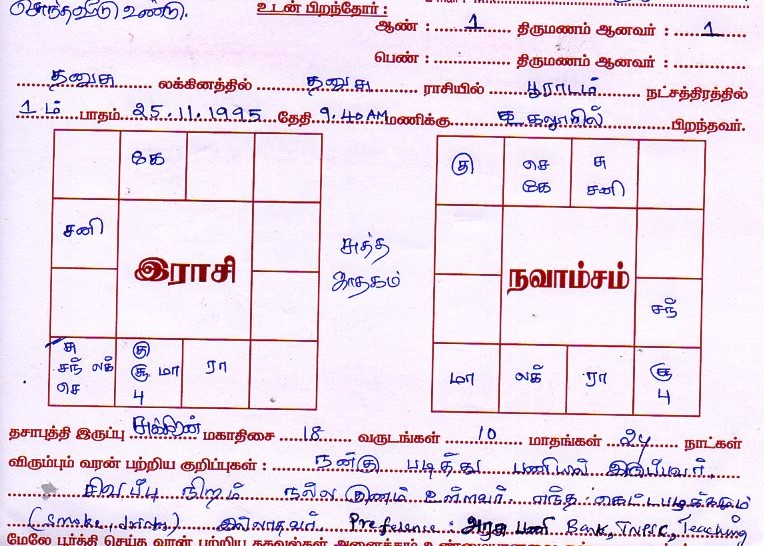 சொந்தவீடு உண்டு.
உடன் பிறந்தோர் :
ஆண் : 1 திருமணம் ஆனவர் : 1
பெண் : திருமணம் ஆனவர் :
தனுசு லக்கினத்தில் தனுசு ராசியில் பூராடம் நட்சத்திரத்தில்
1 ம் பாதம் 25.11.1995 தேதி 9.40 AM மணிக்கு பிறந்தவர்.
கே
சனி
இராசி
சு சந் லக் செ
கு சூ மா பு
ரா
சுத்த ஜாதகம்
கு
செ கே
சு சனி
நவாம்சம்
சந்
மா
லக்
ரா
சூ பு
தசாபுத்தி இருப்பு சுக்கிரன் மகாதிசை 18 வருடங்கள் 10 மாதங்கள் 24 நாட்கள்
விரும்பும் வரன் பற்றிய குறிப்புகள் : நன்கு படித்து பணியில் இருப்பவர்,
சிவப்பு நிறம் நல்ல குணம் உள்ளவர் எந்த கெட்டபழக்கமும்
(smoke, drinks) இல்லாதவர் Preference : அரசு பணி Bank, TNPSC, Teaching
மேலே பூர்த்தி செய்த வரன் பற்றிய தகவல்கள் அனைத்தும் உண்மையானவை